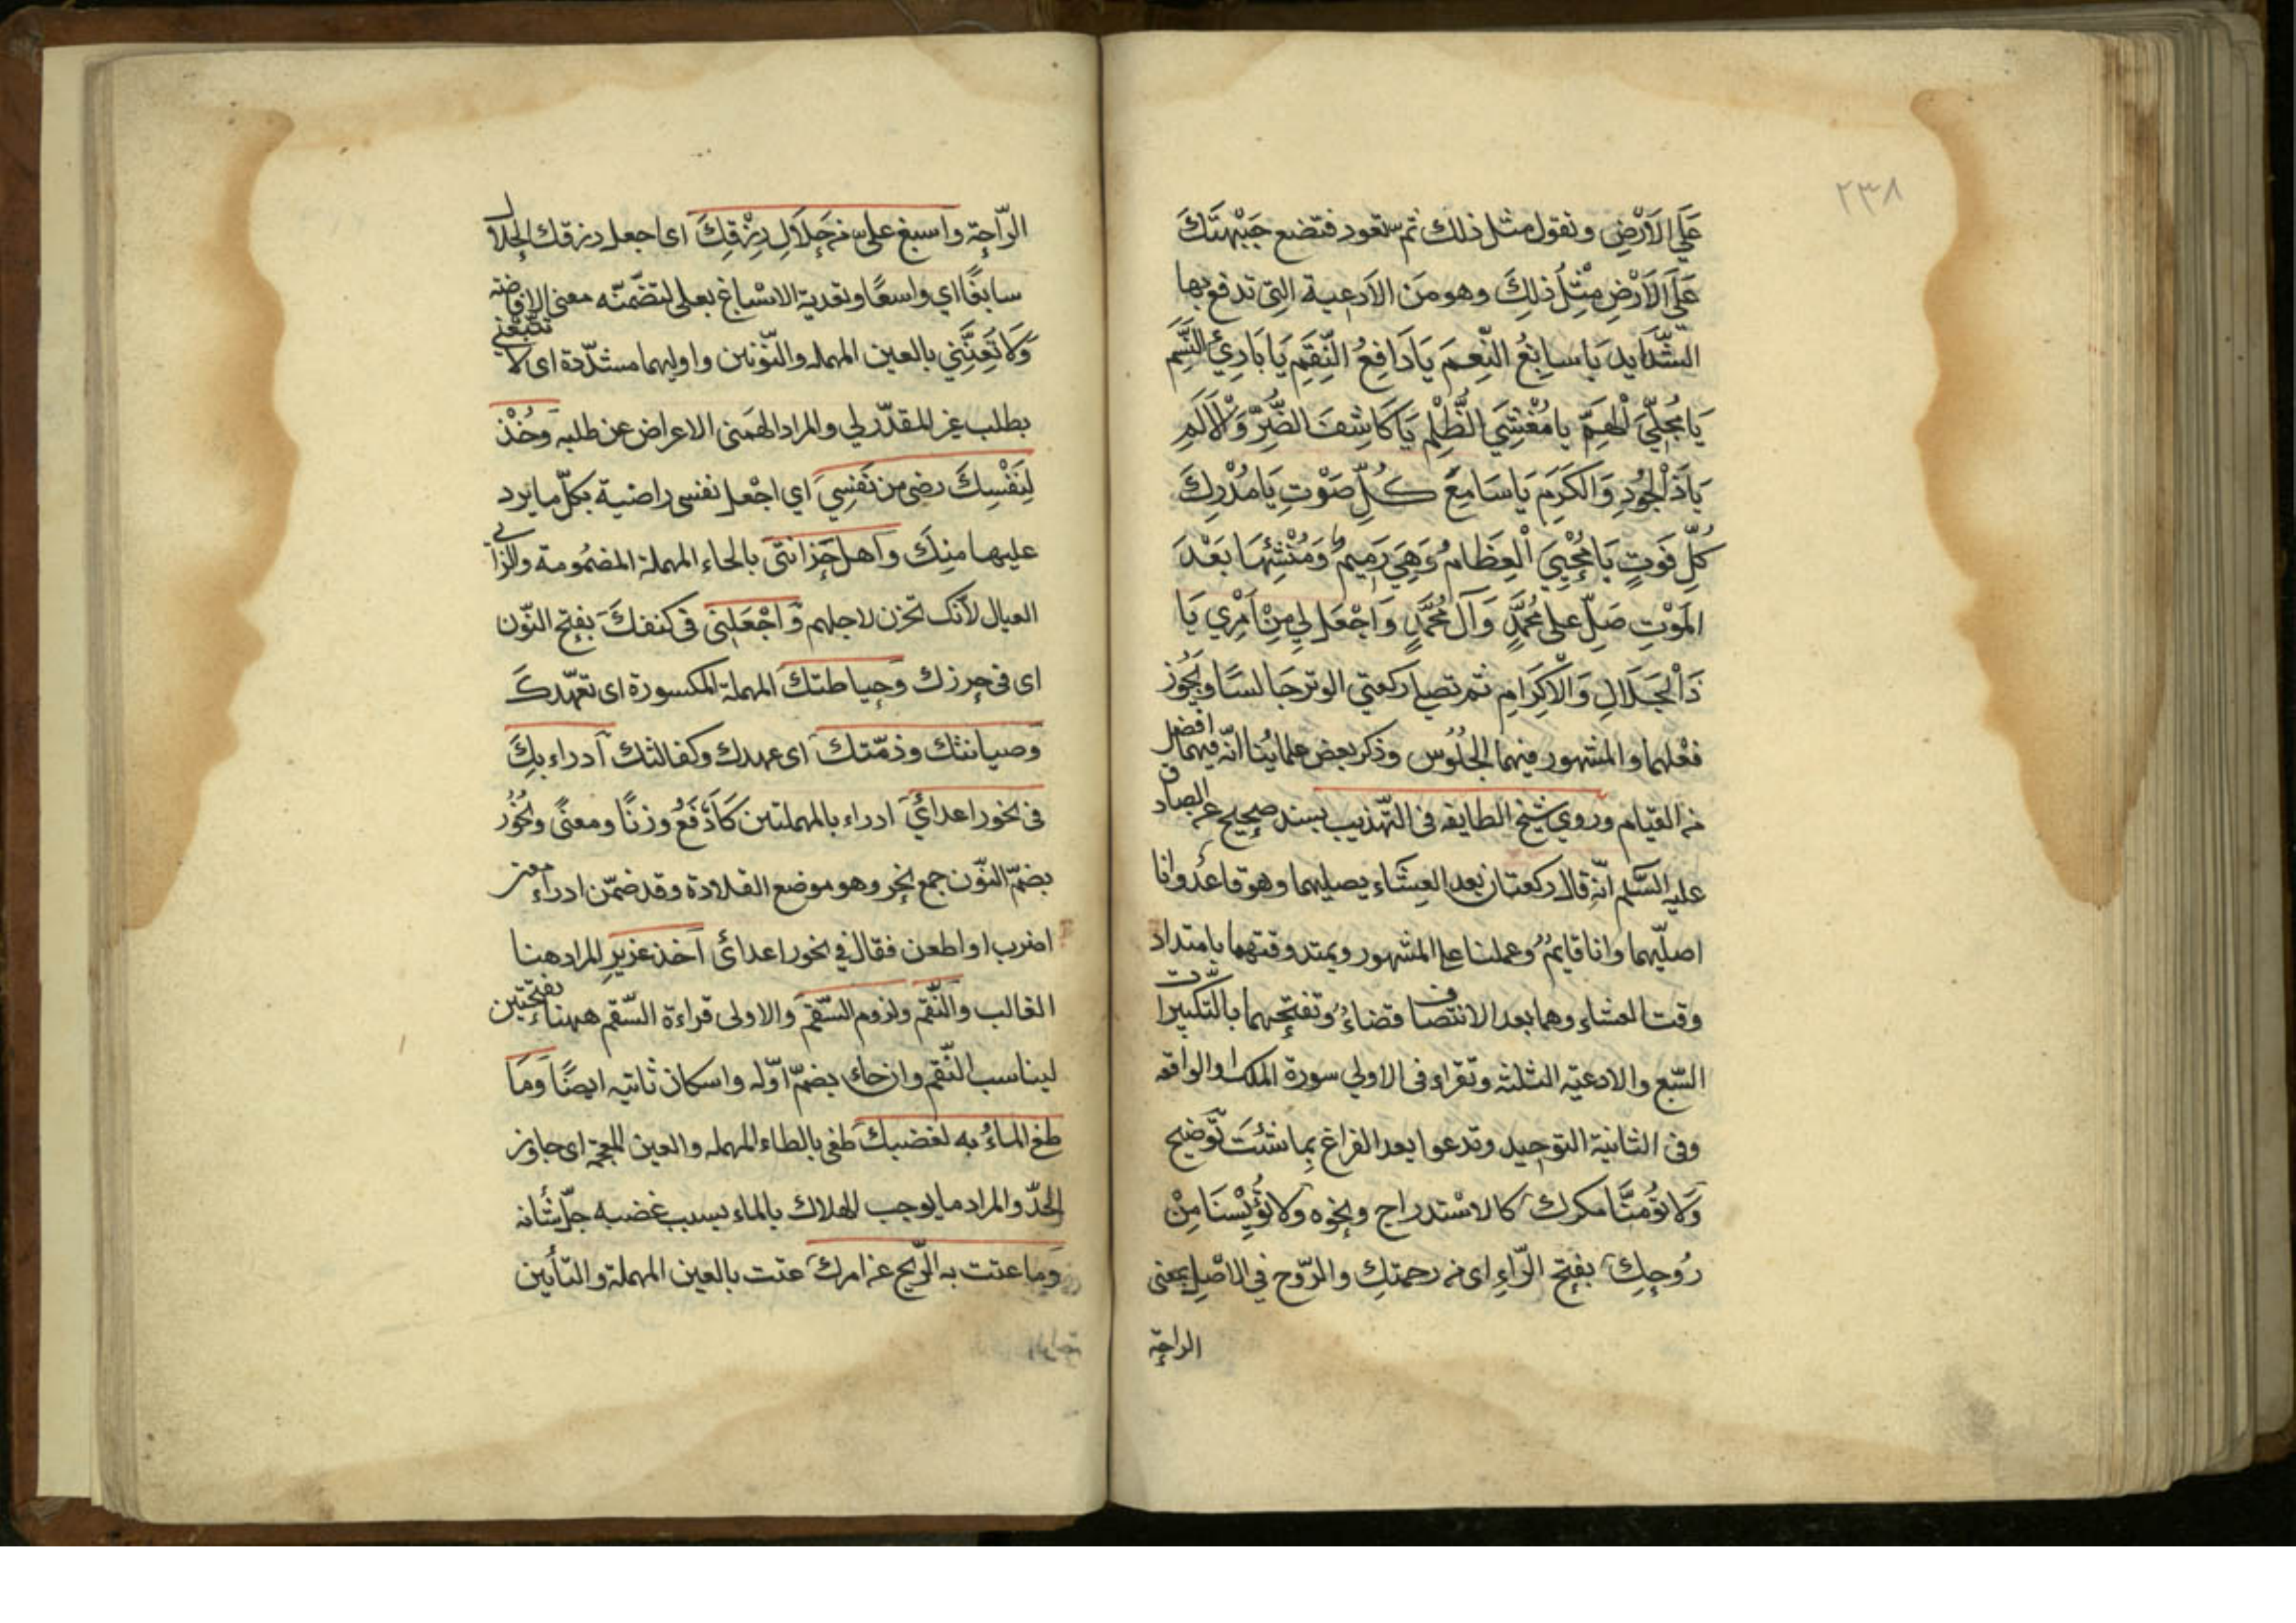 ٢٣٨
عَلَي الاَرْضِ وتقول مثل ذلك ثم تعود فتضع جَبْهَتَكَ
عَلَي الاَرْضِ مِثْلَ ذلِكَ وهو من الادعية التى تدفع بها
الشّدايد يَا سابِغُ النِّعَمِ يَا دَافِعُ النِّقَمِ يَا بَارِئُ النَّسَمِ
يَا مُجَلِّيَ الْهِمَمِ يا مُغْشِيَ الظُّلَمِ يَا كَاشِفَ الضُّرِّ وَالْاَلَمِ
يَا ذَا لْجُودِ وَالكَرَمِ يَا سَامِعَ كُلِّ صَوْتٍ يَا مُدْرِكَ
كُلِّ فَوتٍ يَا مُحْيِيَ الْعِظَامِ وَهِيَ رَمِيمٌ وَمُنْشِئَهَا بَعْدَ
المَوْتِ صَلِّ عَلى مُحَمَّدٍ وَآلِ مُحَمَّدٍ وَاجْعَل لِي مِنْ اَمْرِي يَا
ذَا لْجَلَالِ وَالْاكِرَامِ ثم تصلى ركعتي الوتر جَالسًا ويجُوز
فعْلهما والمشهور فيهما الجلُوس وذكر بعض علمائنا انّه فيهما افضل
من القيام وروي شيخ الطايفه فى التّهذيب بسند صحيح عن الصادق
عليه السَّلم انّه قال ركعتان بعد العِشَاء يصليهما وهو قاعدٌ وانا
اصلّيهما وانا قايمٌ وعملنا على المشهور ويمتد وقتهما بامتداد
وقت العشاء وهما بعد الانتصاف قضاءٌ وتفتحهما بالتكبيرات
السّبع والادعيّه الثلثه وتقراء فى الاولي سورة الملك او الواقعه
وفى الثانية التوحيد وتدعوا بعد الفراغ بِما شئتَ تَوضيح
وَلا تؤمنَّا مكرك كالاسْتدراج ونحوه وَلا تُؤْيِسْنَا مِنْ
رُوحِكَ بفتح الرّاءِ اى من رحمتِك والرّوح في الاصْلِ بمعنى
الراحة
الرّاحة واسبغ على من حَلاَلِ رِزْقِكَ اى اجعل رزقك الحلال
سابغًا اي واسعًا وتعدية الاسْباغ بعلى لتضمّنه معنى الافاضه
وَلا تُعنِّنِي بالعين المهمله والنّونين واوليهما مشدّدة اى لا تتبعني
بطلب غير المقدّر لي والمراد الهمنى الاعراض عن طلبه وَخُذْ
لِنَفْسِكَ رضى من نَفسِي اي اجْعل نفسى راضية بكلّ ما يرد
عليها منِك وأهل حُزانتى بالحاء المهملة المضمُومة والزاى
العيال لأنك تحزن لاجلهم وَاجْعَلنى فى كنفكَ بفتح النّون
اى فى حِرزك وحِياطتك المهملة المكسورة اى تعهّدكَ
وصيانتك وذمّتك اى عهدك وكفالتك أدراء بِكَ
فى نحور اعدائي ادراء بالمهملتين كَاَدْفَعُ وزنًا ومعنًى ونُحُوُر
بضمّ النوّن جمع نحر وهو موضع القلادة وقد ضمّن ادراء معنى
اضرب او اطعن فقال في نحور اعدائى اخذ عزيزِ المراد هنا
الغالب والنّقم ولزوم السّقم والاولى قراءة السّقم ههنا بفتحتين
ليناسب النّقم وان جاء بضمّ اوّله واسكان ثانيه ايضًا وَمَا
طغ الماءُ به لغضبك طغى بالطاء المهمله والغين المعجمة اى جاوز
الحدّ والمراد ما يوجب الهلاك بالماء بسبب غضبه جلّ شأنه
وما عتت به الرّيح عن امرك عتت بالعين المهملة والتأيين